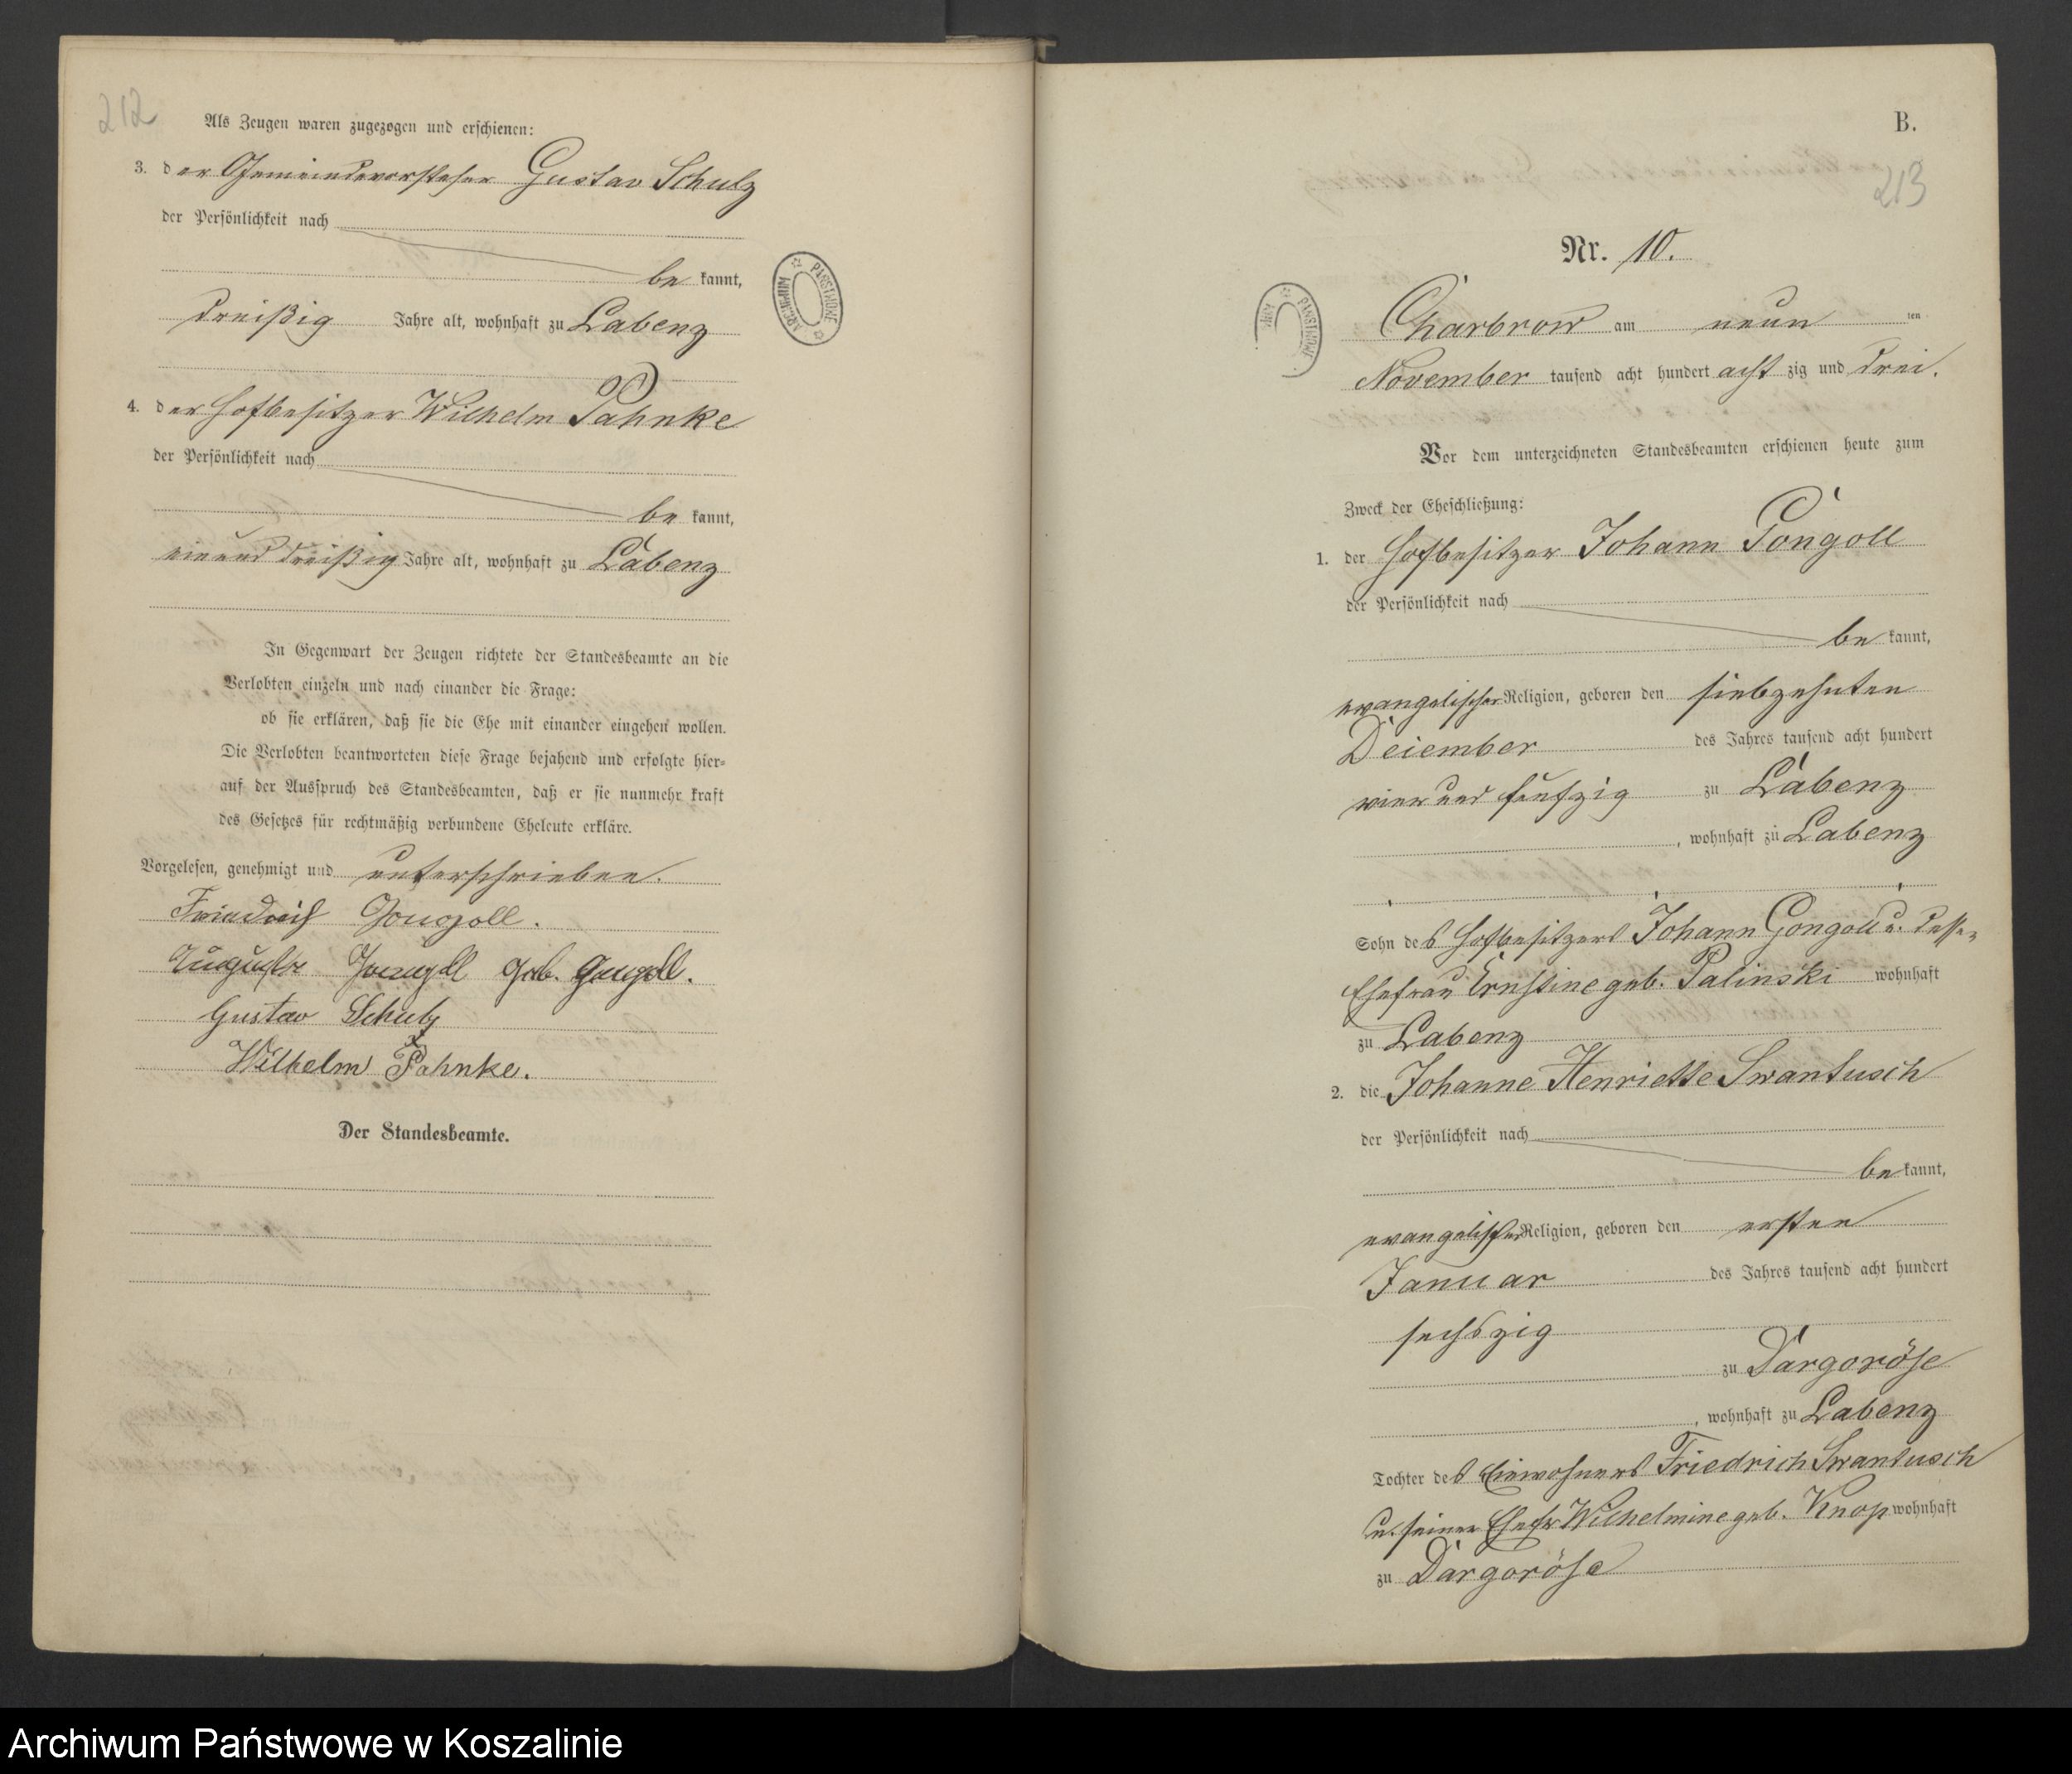 212
Als Zeugen waren zugezogen und erschienen:
3. der Gemeindevorsteher Gustav Schulz
der Persönlichkeit nach
be kannt,
dreißig Jahre alt, wohnhaft zu Labenz
4. der Hofbesitzer Wilhelm Pahnke
der Persönlichkeit nach
be kannt,
einund dreißig Jahre alt, wohnhaft zu Labenz
In Gegenwart der Zeugen richtete der Standesbeamte an die
Verlobten einzeln und nach einander die Frage:
ob sie erklären, daß sie die Ehe mit einander eingehen wollen.
Die Verlobten beantworteten diese Frage bejahend und erfolgte hier-
auf der Ausspruch des Standesbeamten, daß er sie nunmehr kraft
des Gesetzes für rechtmäßig verbundene Eheleute erkläre.
Vorgelesen, genehmigt und unterschrieben.
Friedrich Gongoll.
Auguste Gongoll geb. Gongoll.
Gustav Schulz
Wilhelm Pahnke.
Der Standesbeamte.
ARCHIWUM PAŃSTWOWE
B.
213
Nr. 10.
Charbrow am neun ten
November tausend acht hundert acht zig und drei.
Vor dem unterzeichneten Standesbeamten erschienen heute zum
Zweck der Eheschließung:
1. der Hofbesitzer Johann Gongoll
der Persönlichkeit nach
be kannt,
evangelischer Religion, geboren den siebzehnten
Dezember des Jahres tausend acht hundert
vier und fünfzig zu Labenz
, wohnhaft zu Labenz
Sohn des Hofbesitzers Johann Gongoll u. dessen
Ehefrau Ernstine geb. Palinski wohnhaft
zu Labenz
2. die Johanne Henriette Swantusch
der Persönlichkeit nach
be kannt,
evangelischer Religion, geboren den ersten
Januar des Jahres tausend acht hundert
sechszig
zu Dargoröse
, wohnhaft zu Labenz
Tochter des Einwohners Friedrich Swantusch
u. seiner Ehefr Wilhelmine geb. Knop wohnhaft
zu Dargoröse
Archiwum Państwowe w Koszalinie